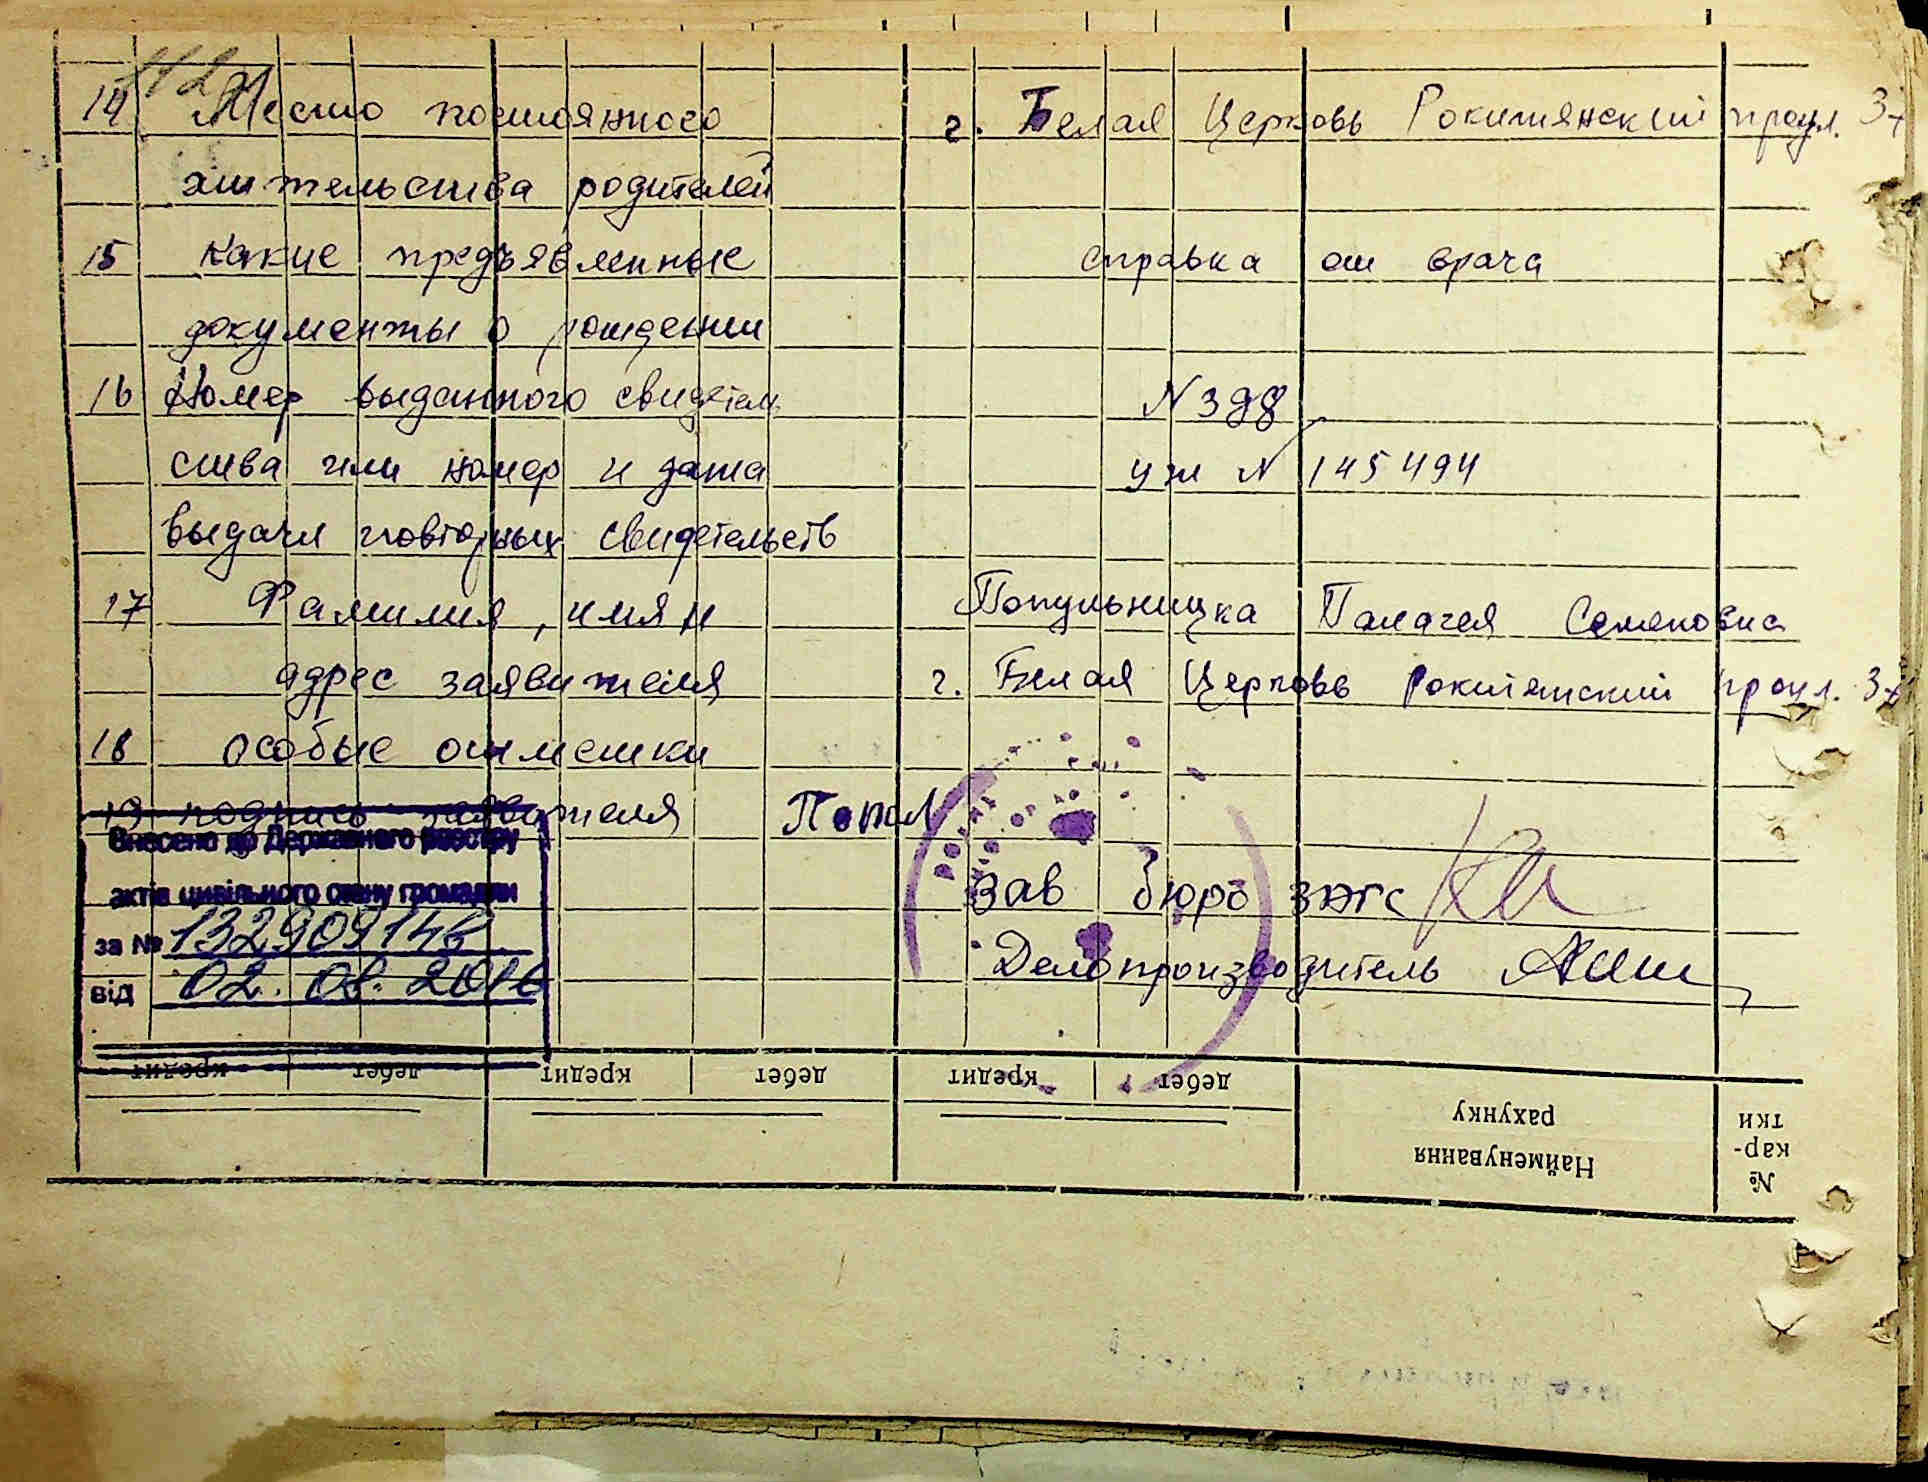 112
14 Место постоянного г. Белая Церковь Рокитянский проул. 37
жительства родителей
15 Какие предъявленные справка от врача
документы о рождении
16 Номер выданного свидетель N 398
ства или номер и дата уж N 145494
выдачи повторных свидетельств
17 Фамилия, имя и Попульницка Палагея Семеновна
адрес заявителя г. Белая Церковь Рокитянский проул. 37
18 особые отметки
19 подпись заявителя Попол
Внесено до Державного реєстру
актів цивільного стану громадян
зав бюро загс
за №
Делопроизводитель
від 02. 08.
кредит дебет кредит дебет кредит дебет
Найменування рахунку
№ кар-тки